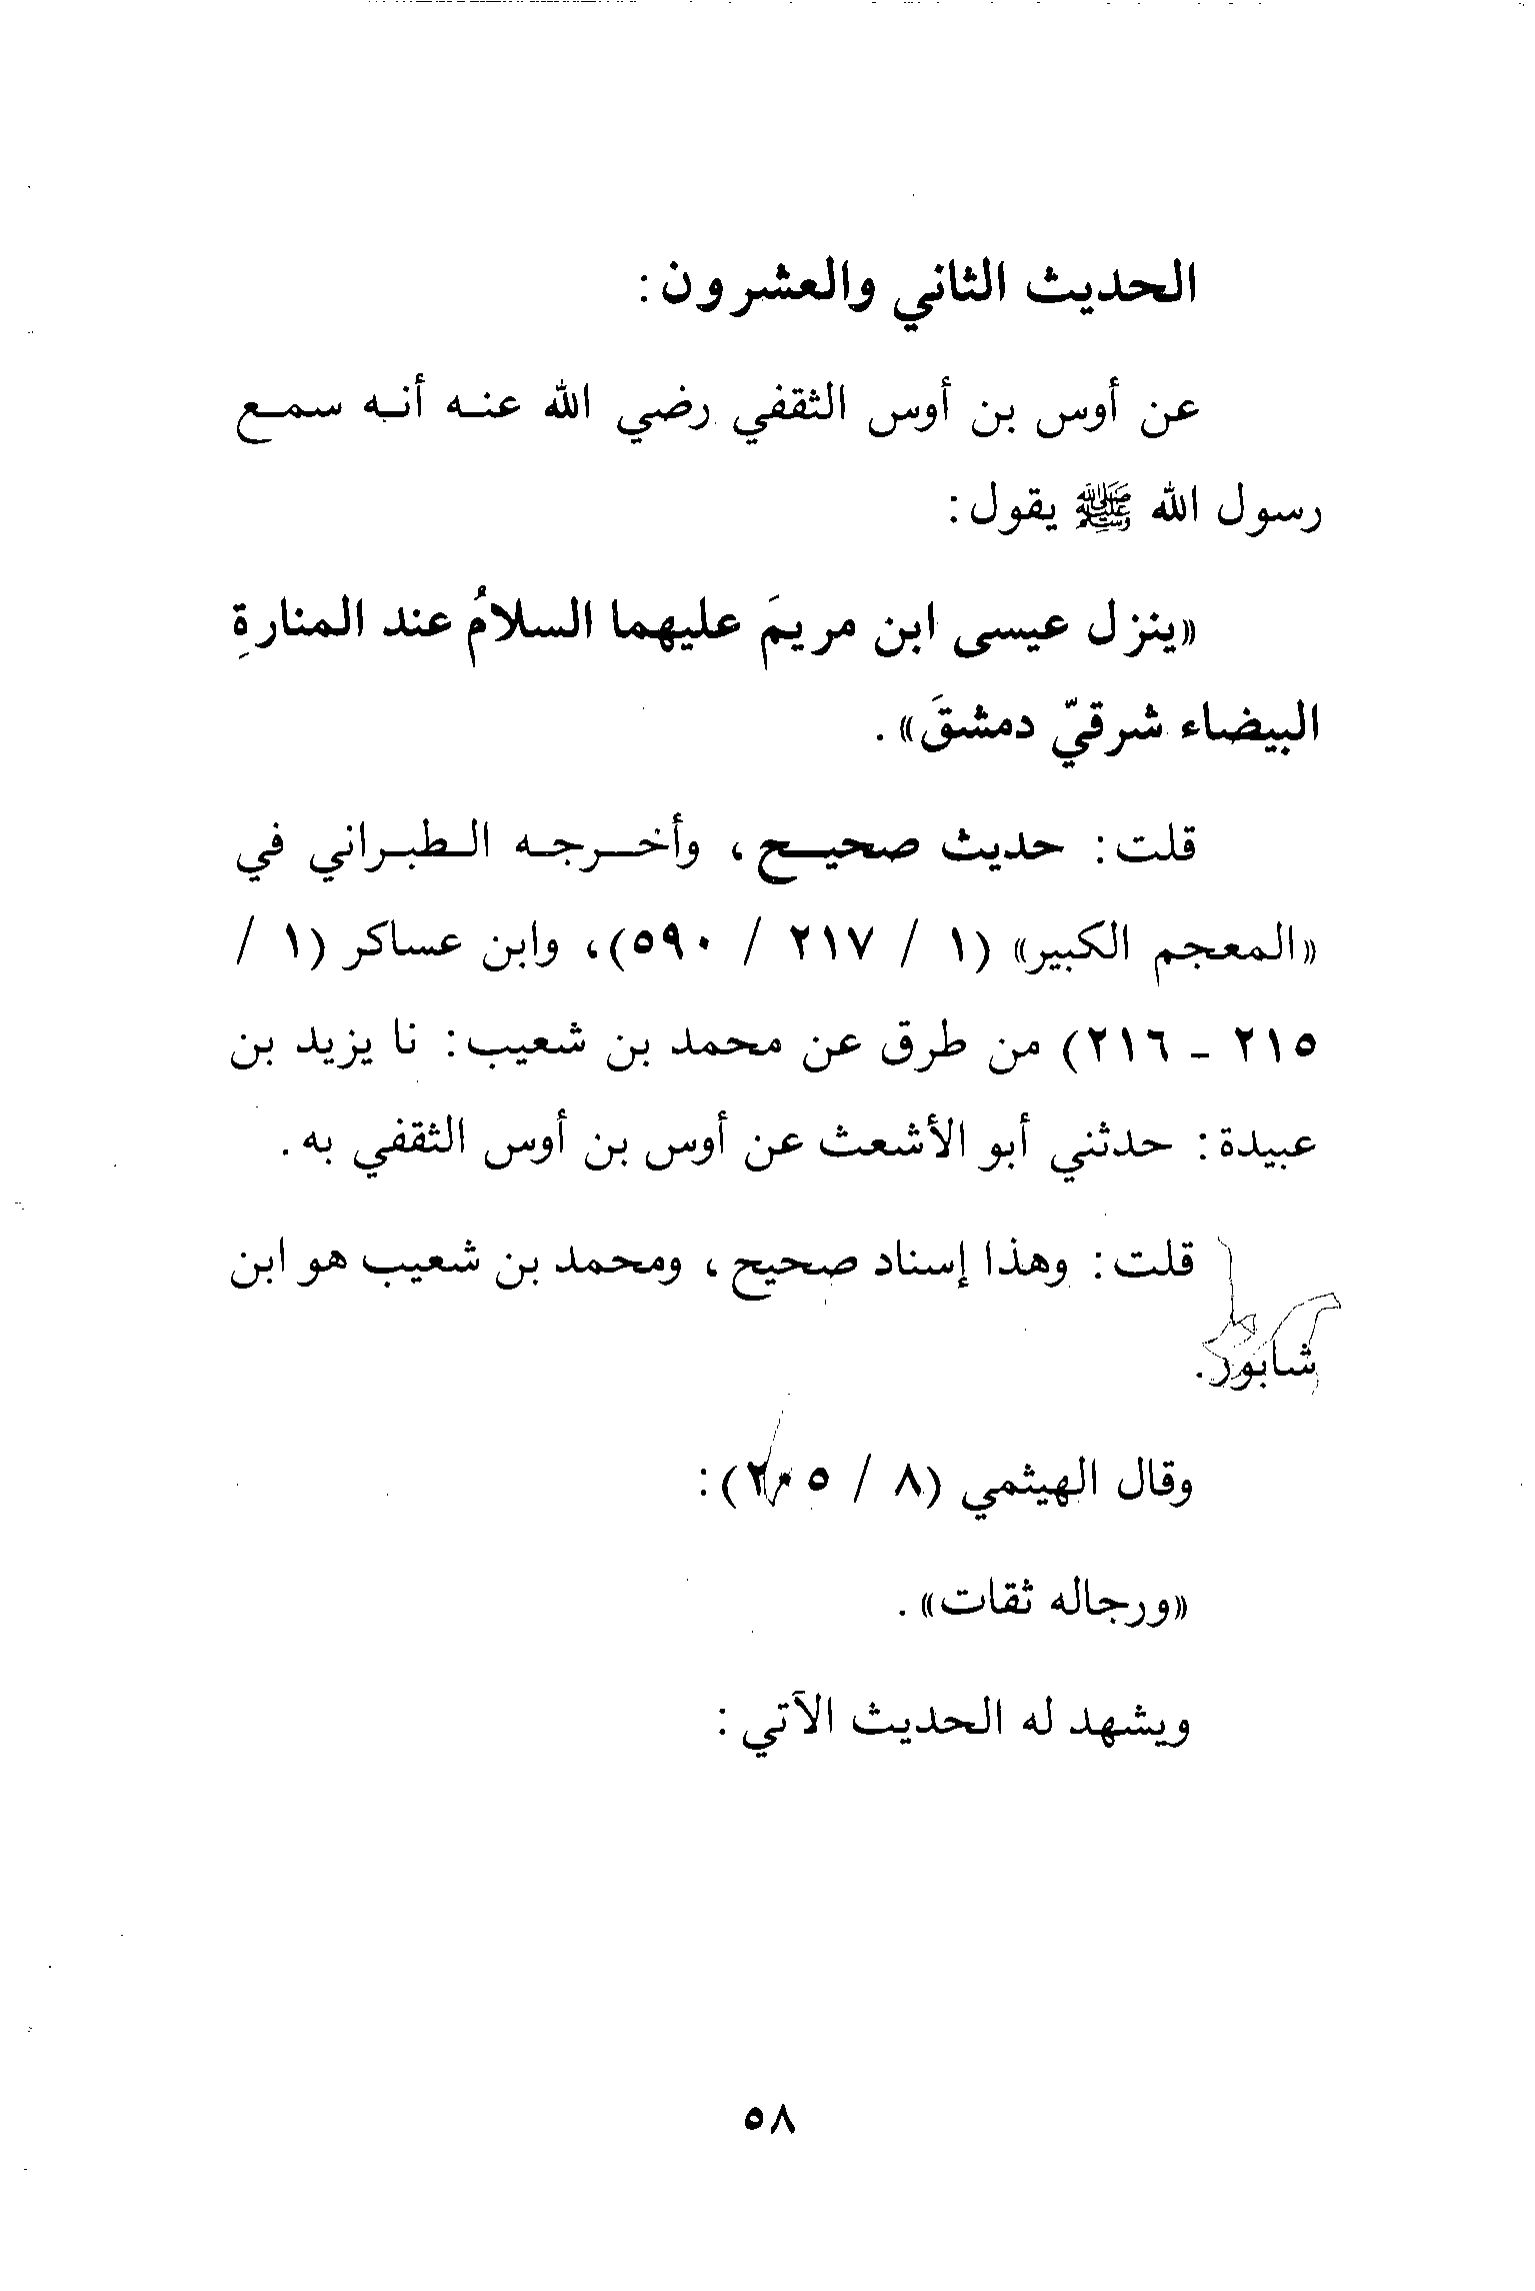 الحديث الثاني والعشرون:
عن أوس بن أوس الثقفي رضي الله عنه أنه سمع
رسول الله ﷺ يقول:
«ينزل عيسى ابن مريمَ عليهما السلامُ عند المنارةِ
البيضاء شرقيّ دمشقَ».
قلت: حديث صحيح، وأخرجه الطبراني في
«المعجم الكبير» (١ / ٢١٧ / ٥٩٠)، وابن عساكر (١ /
٢١٥ ـ ٢١٦) من طرق عن محمد بن شعيب: نا يزيد بن
عبيدة: حدثني أبو الأشعث عن أوس بن أوس الثقفي به.
قلت: وهذا إسناد صحيح، ومحمد بن شعيب هو ابن
شابور.
وقال الهيثمي (٨ / ٢٠٥):
«ورجاله ثقات».
ويشهد له الحديث الآتي:
٥٨